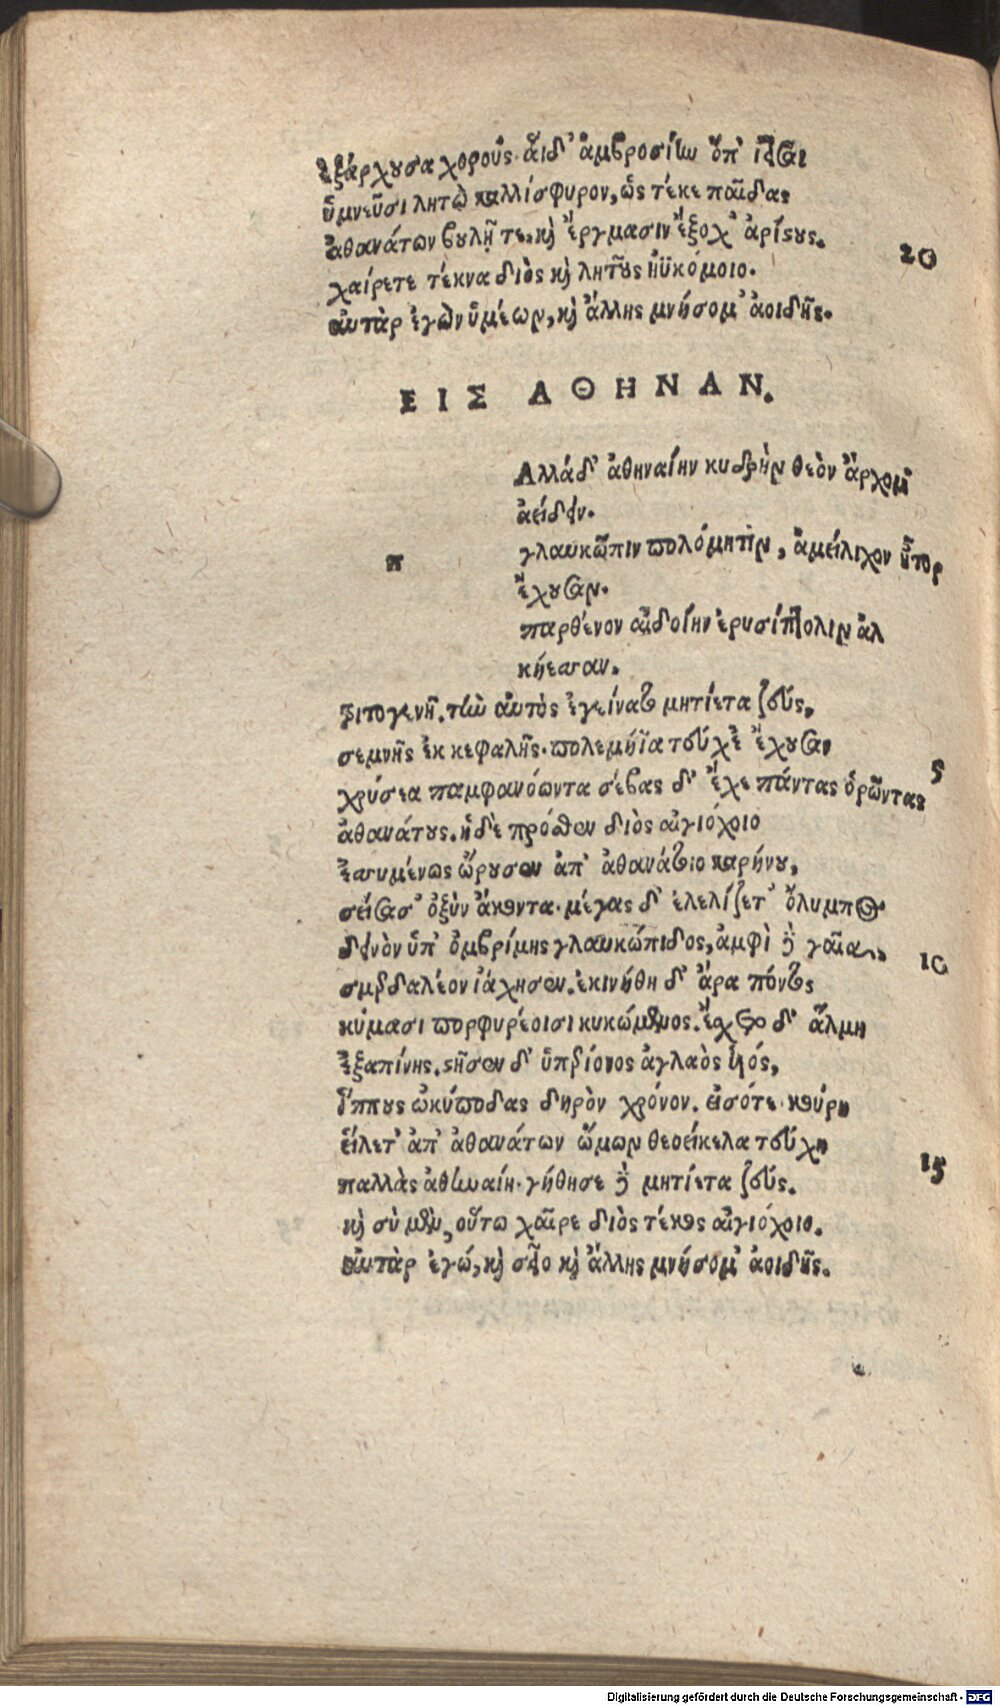 ἐξάρχουσα χορούς. αἱ δ' ἀμβροσίην ὄπ' ἰεῖσαι
ὑμνεῦσι λητὼ καλλίσφυρον, ὡς τέκε παῖδας
ἀθανάτων βουλῇ τε, καὶ ἔργμασιν ἔξοχ' ἀρίστους.
20
χαίρετε τέκνα διὸς καὶ λητοῦς ἠϋκόμοιο.
αὐτὰρ ἐγὼν ὑμέων, καὶ ἄλλης μνήσομ' ἀοιδῆς.
ΕΙΣ ΑΘΗΝΑΝ.
π
Αλλάδ' ἀθηναίην κυδρὴν θεὸν ἄρχομ'
ἀείδειν.
γλαυκῶπιν πολύμητιν, ἀμείλιχον ἦτορ
ἔχουσαν.
παρθένον αἰδοίην ἐρυσίπτολιν ἀλ
κήεσσαν.
τριτογενῆ. τὴν αὐτὸς ἐγείνατο μητίετα ζεύς,
σεμνῆς ἐκ κεφαλῆς. πολεμήϊα τεύχε' ἔχουσαν
5
χρύσεα παμφανόωντα σέβας δ' ἔχε πάντας ὁρῶντας
ἀθανάτους. ἡ δὲ πρόσθεν διὸς αἰγιόχοιο
ἐσσυμένως ὤρουσεν ἀπ' ἀθανάτοιο καρήνου,
σείσασ' ὀξὺν ἄκοντα. μέγας δ' ἐλελίζετ' ὄλυμπος
δεινὸν ὑπ' ὀμβρίμης γλαυκώπιδος, ἀμφὶ δὲ γαῖα
10
σμερδαλέον ἰάχησεν. ἐκινήθη δ' ἄρα πόντος
κύμασι πορφυρέοισι κυκώμενος. ἔσχετο δ' ἅλμη
ἐξαπίνης. στῆσεν δ' ὑπερίονος ἀγλαὸς υἱός,
ἵππους ὠκύποδας δηρὸν χρόνον. εἰσότε κούρη
εἵλετ' ἀπ' ἀθανάτων ὤμων θεοείκελα τεύχη
παλλὰς ἀθηναίη. γήθησε δὲ μητίετα ζεύς.
15
καὶ σὺ μὲν, οὕτω χαῖρε διὸς τέκος αἰγιόχοιο.
αὐτὰρ ἐγώ, καὶ σεῖο καὶ ἄλλης μνήσομ' ἀοιδῆς.
Digitalisierung gefördert durch die Deutsche Forschungsgemeinschaft - DFG